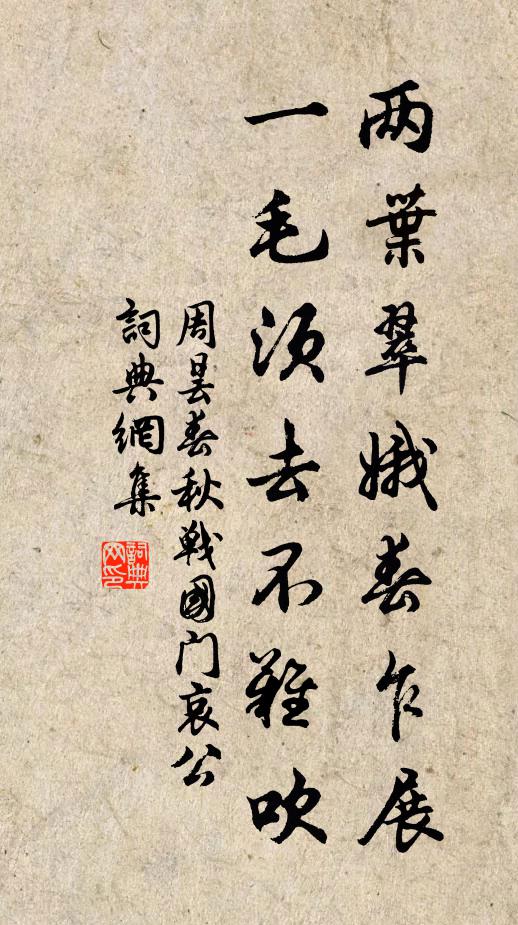 两葉翠娥春乍展
一毛须去不難吹
周昙春秋戦國门哀公
詞典網集
詞典网印